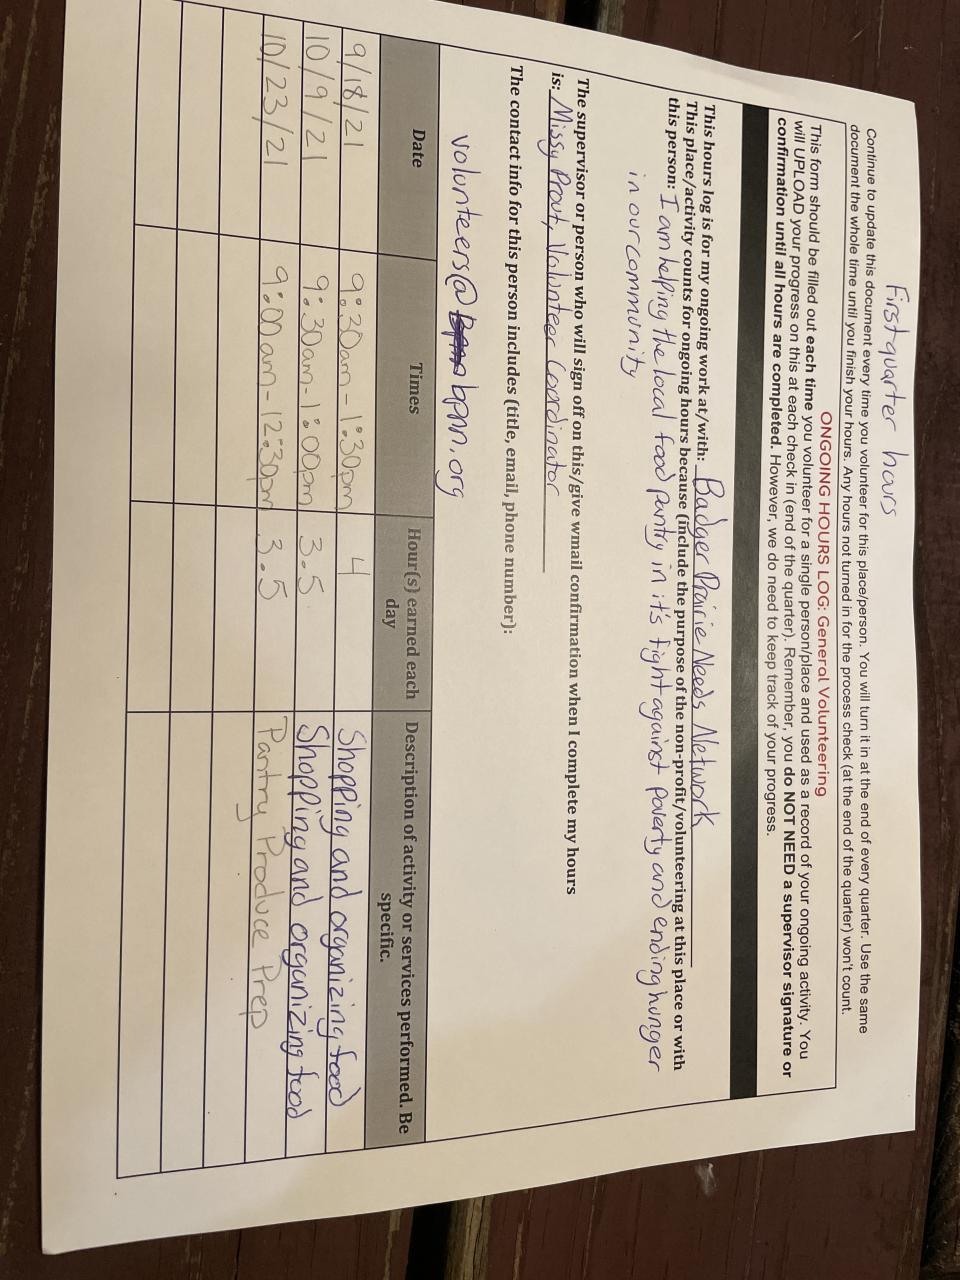 First quarter hours
Continue to update this document every time you volunteer for this place/person. You will turn it in at the end of every quarter. Use the same
document the whole time until you finish your hours. Any hours not turned in for the process check (at the end of the quarter) won't count.
ONGOING HOURS LOG: General Volunteering
This form should be filled out each time you volunteer for a single person/place and used as a record of your ongoing activity. You
will UPLOAD your progress on this at each check in (end of the quarter). Remember, you do NOT NEED a supervisor signature or
confirmation until all hours are completed. However, we do need to keep track of your progress.
This hours log is for my ongoing work at/with: Badger Prairie Needs Network
This place/activity counts for ongoing hours because (include the purpose of the non-profit/volunteering at this place or with
this person: I am helping the local food pantry in it's fight against poverty and ending hunger
in our community
The supervisor or person who will sign off on this/give wmail confirmation when I complete my hours
is: Missy Prout, Volunteer Coordinator
The contact info for this person includes (title, email, phone number):
volunteers@ bpnn.org
Date Times Hour(s) earned each day Description of activity or services performed. Be specific.
9/18/21 9:30am-1:30pm 4 Shopping and organizing food
10/9/21 9:30am-1:00pm 3.5 Shopping and organizing food
10/23/21 9:00am-12:30pm 3.5 Pantry Produce Prep